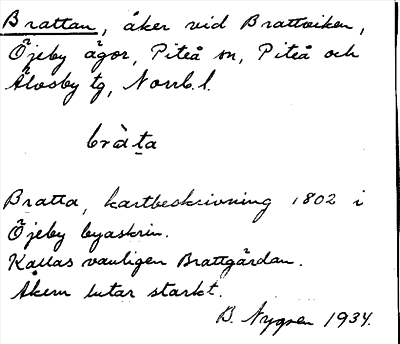 Brattan, åker vid Brattviken,
Öjeby ägor, Piteå sn, Piteå och
Älvsby tg, Norrb. l.
bràta
Bratta, kartbeskrivning 1802 i
Öjeby byaskrin.
Kallas vanligen Brattgärdan.
Åkern lutar starkt.
B. Nygren 1934.